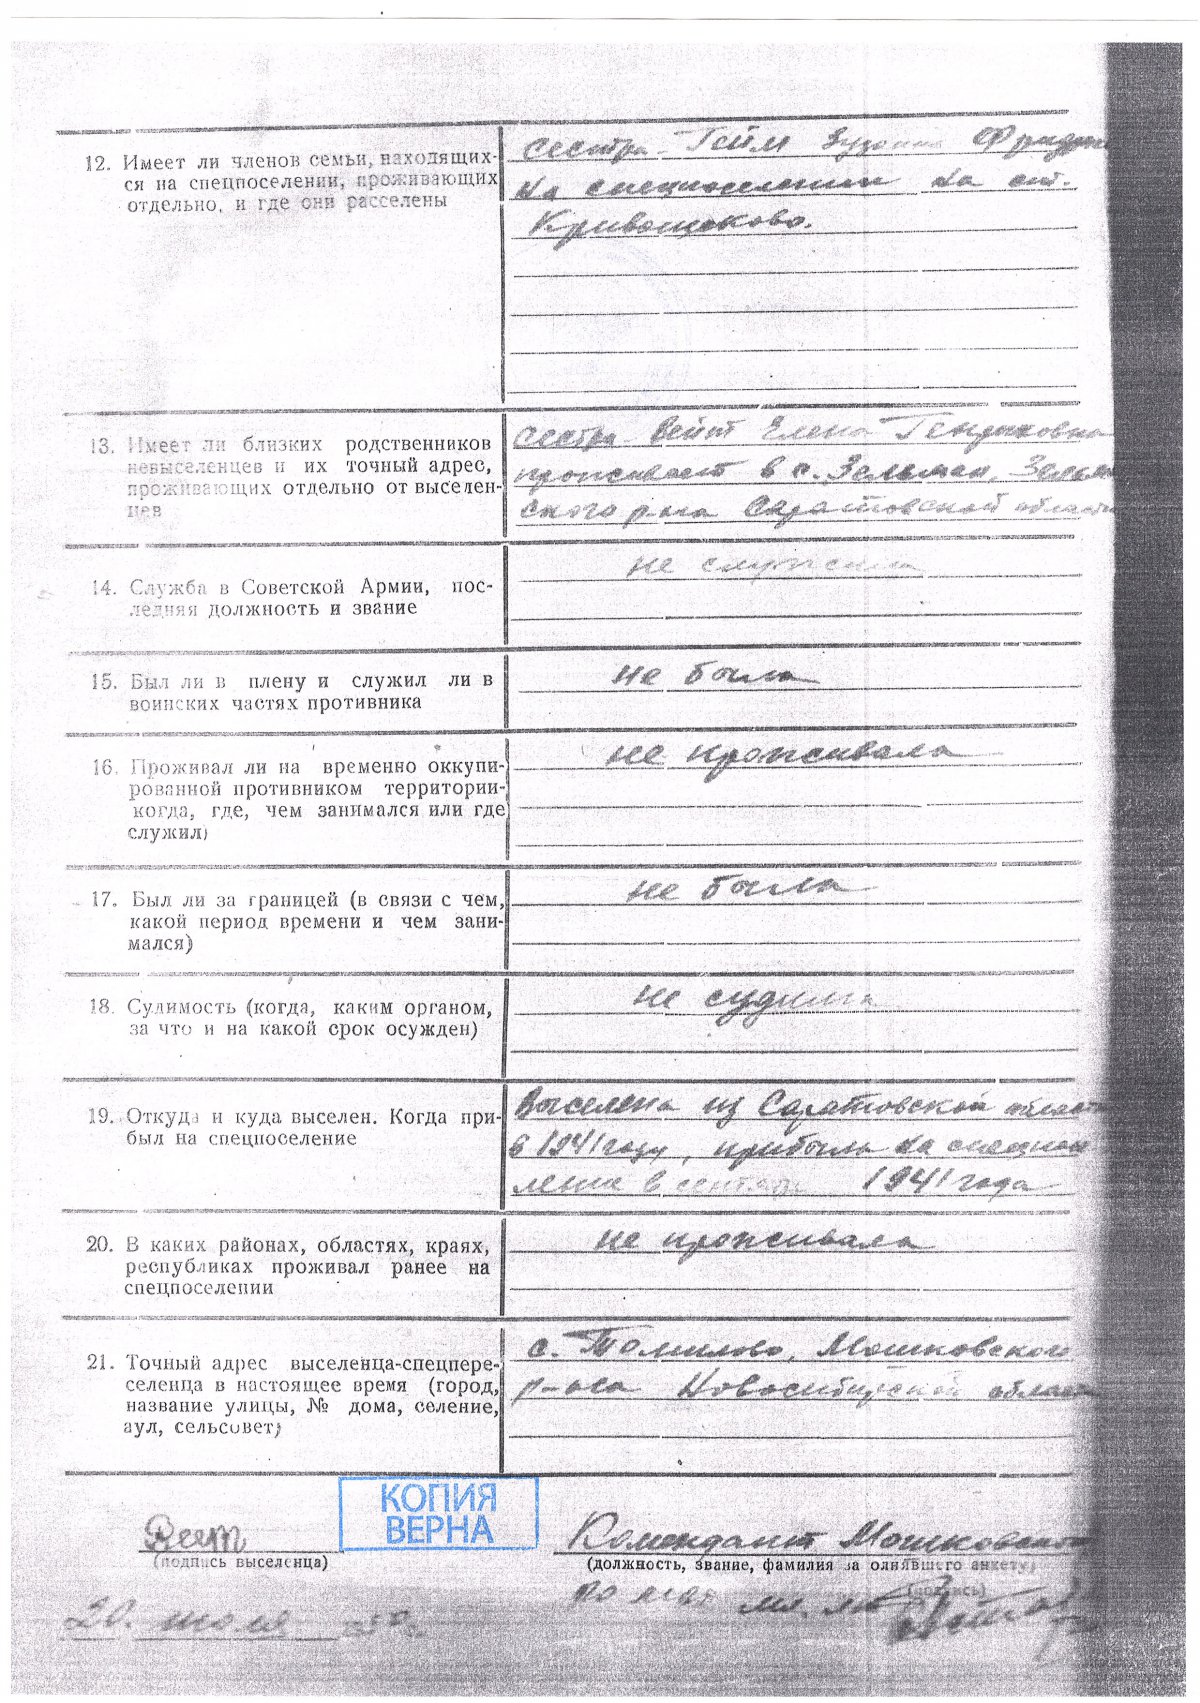 12. Имеет ли членов семьи, находящих-
ся на спецпоселении, проживающих
отдельно, и где они расселены
сестра Гейм Зузанна
на спецпоселении на ст.
Кривощоково.
13. Имеет ли близких родственников
невыселенцев и их точный адрес,
проживающих отдельно от выселен-
цев
сестра Вейт Елена
проживает в с. Зельман,
ского р-на Саратовской области
14. Служба в Советской Армии, пос-
ледняя должность и звание
не служила
15. Был ли в плену и служил ли в
воинских частях противника
не была
16. Проживал ли на временно оккупи-
рованной противником территории-
когда, где, чем занимался или где
служил)
не проживала
17. Был ли за границей (в связи с чем,
какой период времени и чем зани-
мался)
не была
18. Судимость (когда, каким органом,
за что и на какой срок осужден)
не судима
19. Откуда и куда выселен. Когда при-
был на спецпоселение
Выселена из Саратовской области
в 1941 году, прибыла на спецпосе
ление в сентябре 1941 года
20. В каких районах, областях, краях,
республиках проживал ранее на
спецпоселении
не проживала
21. Точный адрес выселенца-спецпере-
селенца в настоящее время (город,
название улицы, № дома, селение,
аул, сельсовет)
с. Томилово, Мошковского
р-на Новосибирской области
КОПИЯ
ВЕРНА
(подпись выселенца)
Комендант Мошковской
(должность, звание, фамилия заполнявшего анкету)
(подпись)
мл. л-т
20. июля